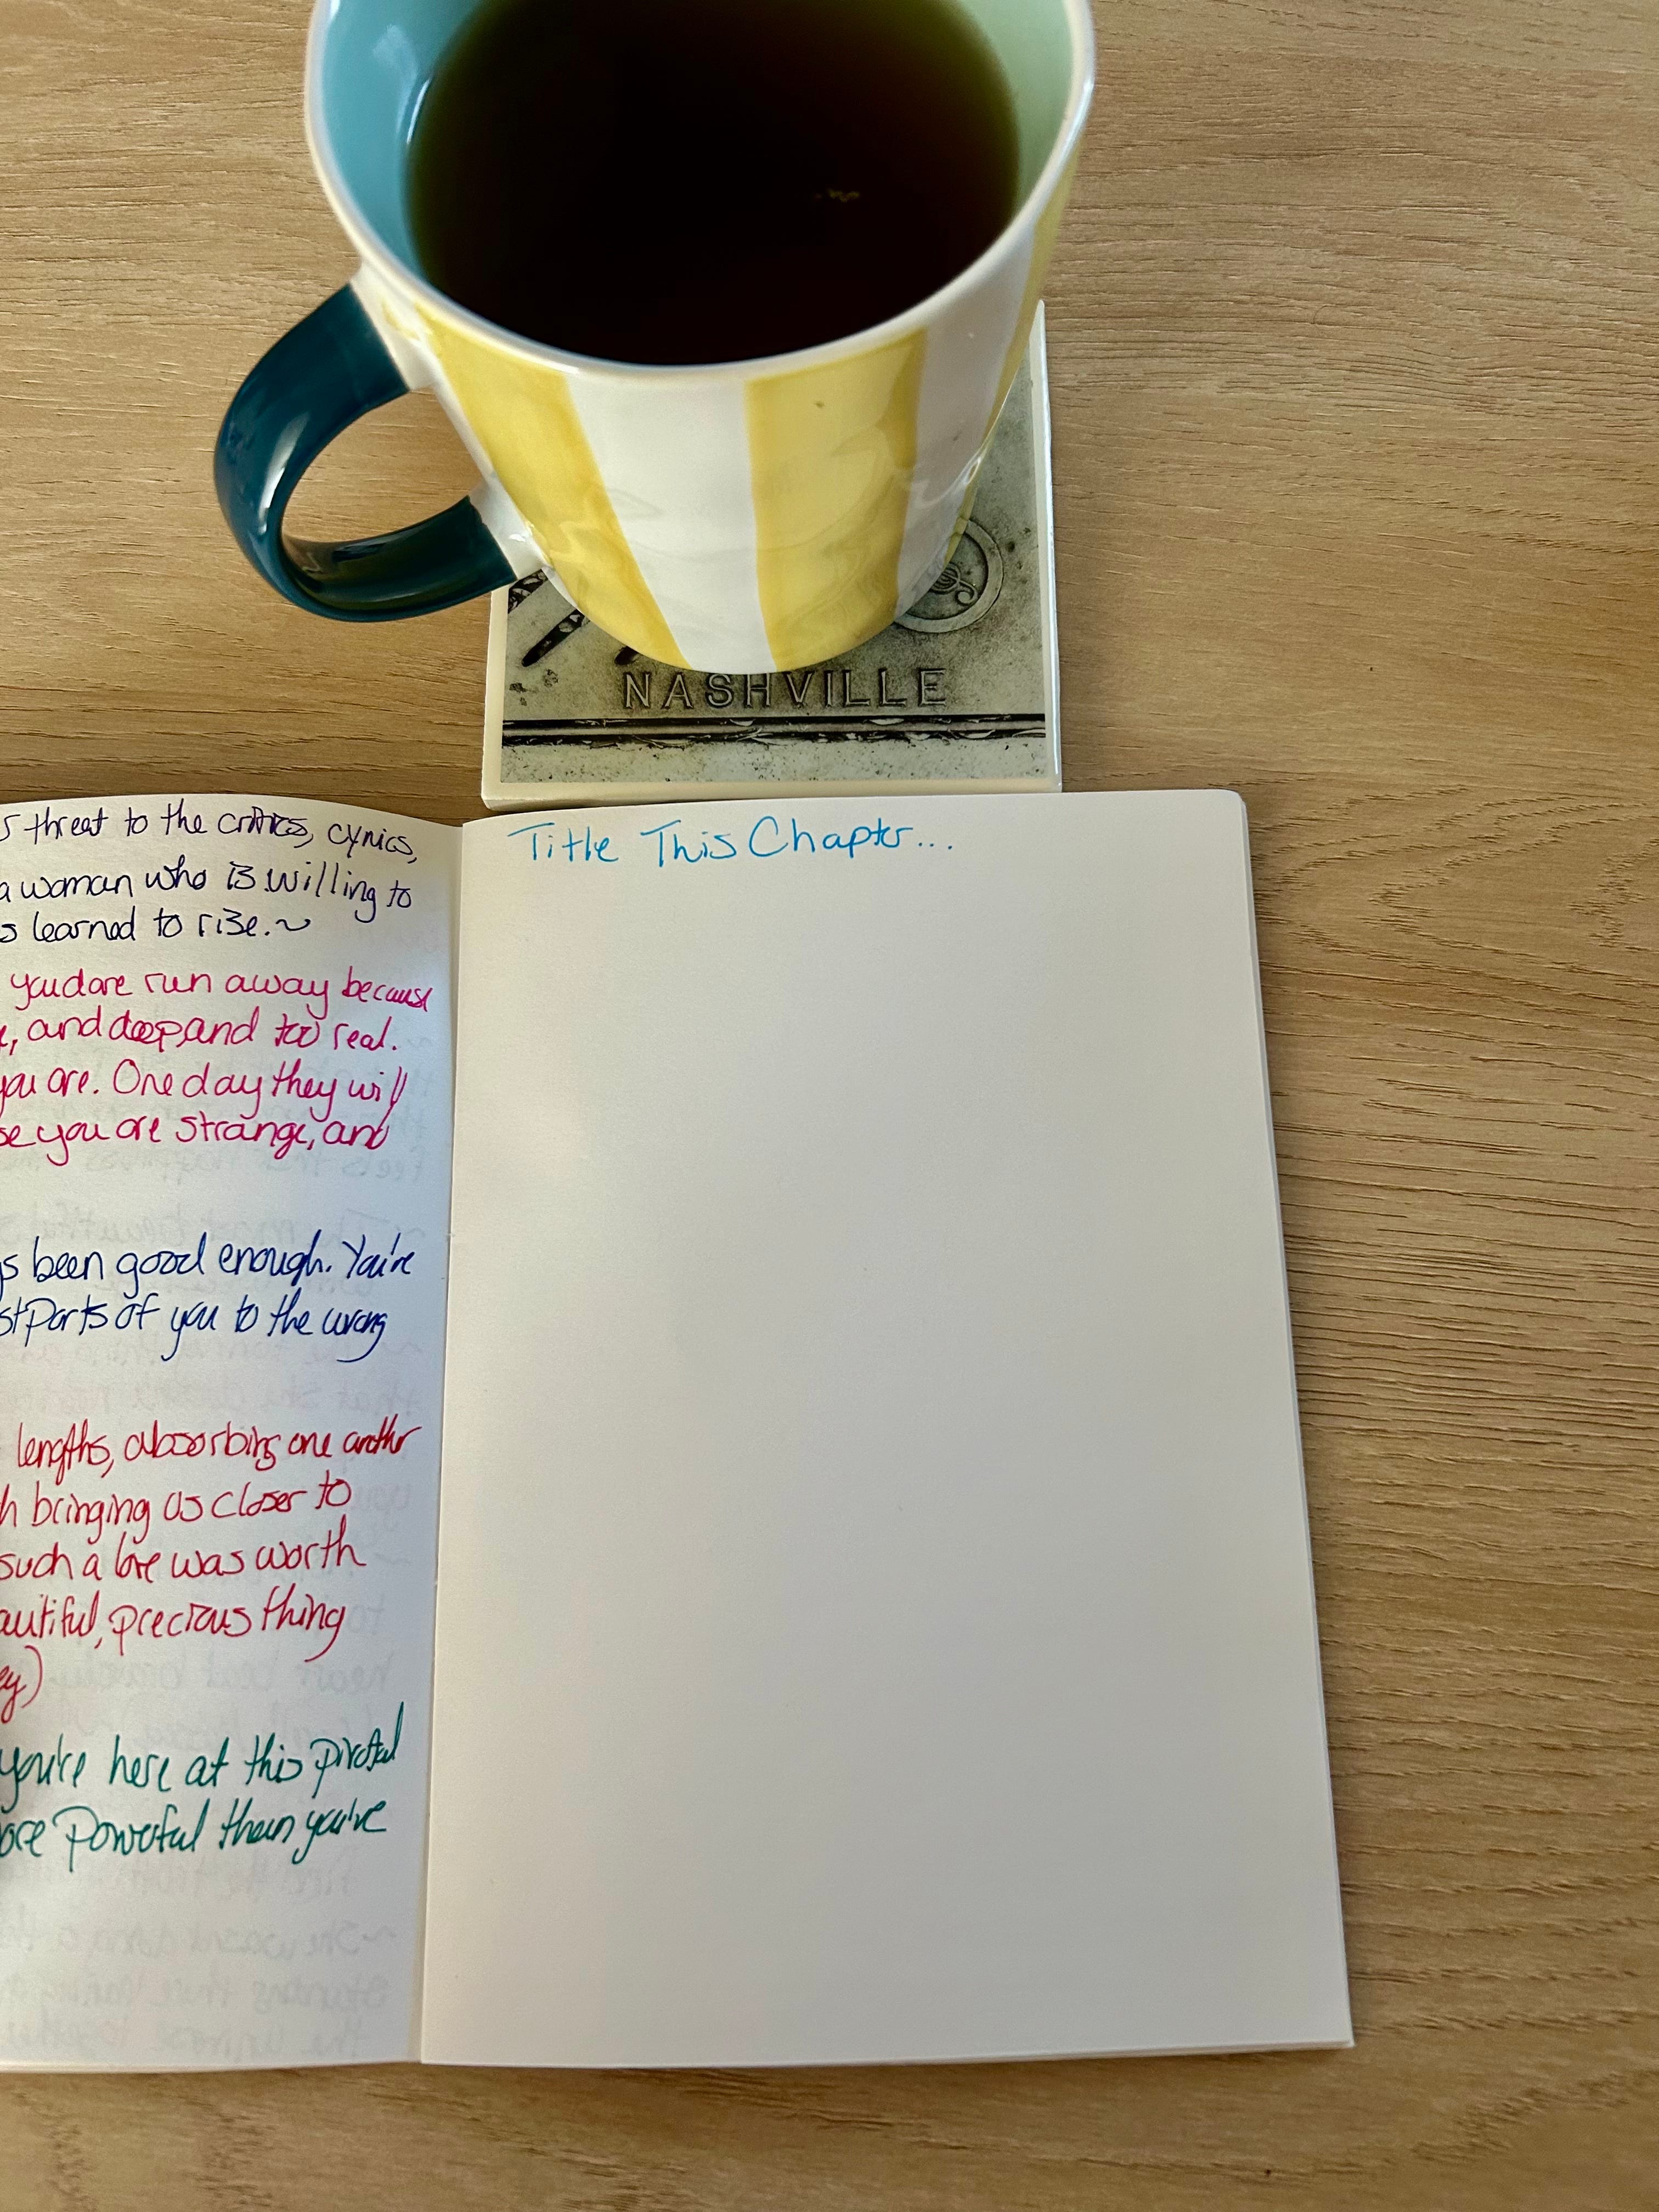 NASHVILLE
s threat to the critics, cynics,
a woman who is willing to
s learned to rise.~
you dare run away because
, and deep, and too real.
you are. One day they will
se you are strange, and
s been good enough. You're
st parts of you to the wrong
lengths, absorbing one another
h bringing us closer to
such a love was worth
autiful, precious thing
ey)
you're here at this pivotal
ore powerful than you've
Title This Chapter...